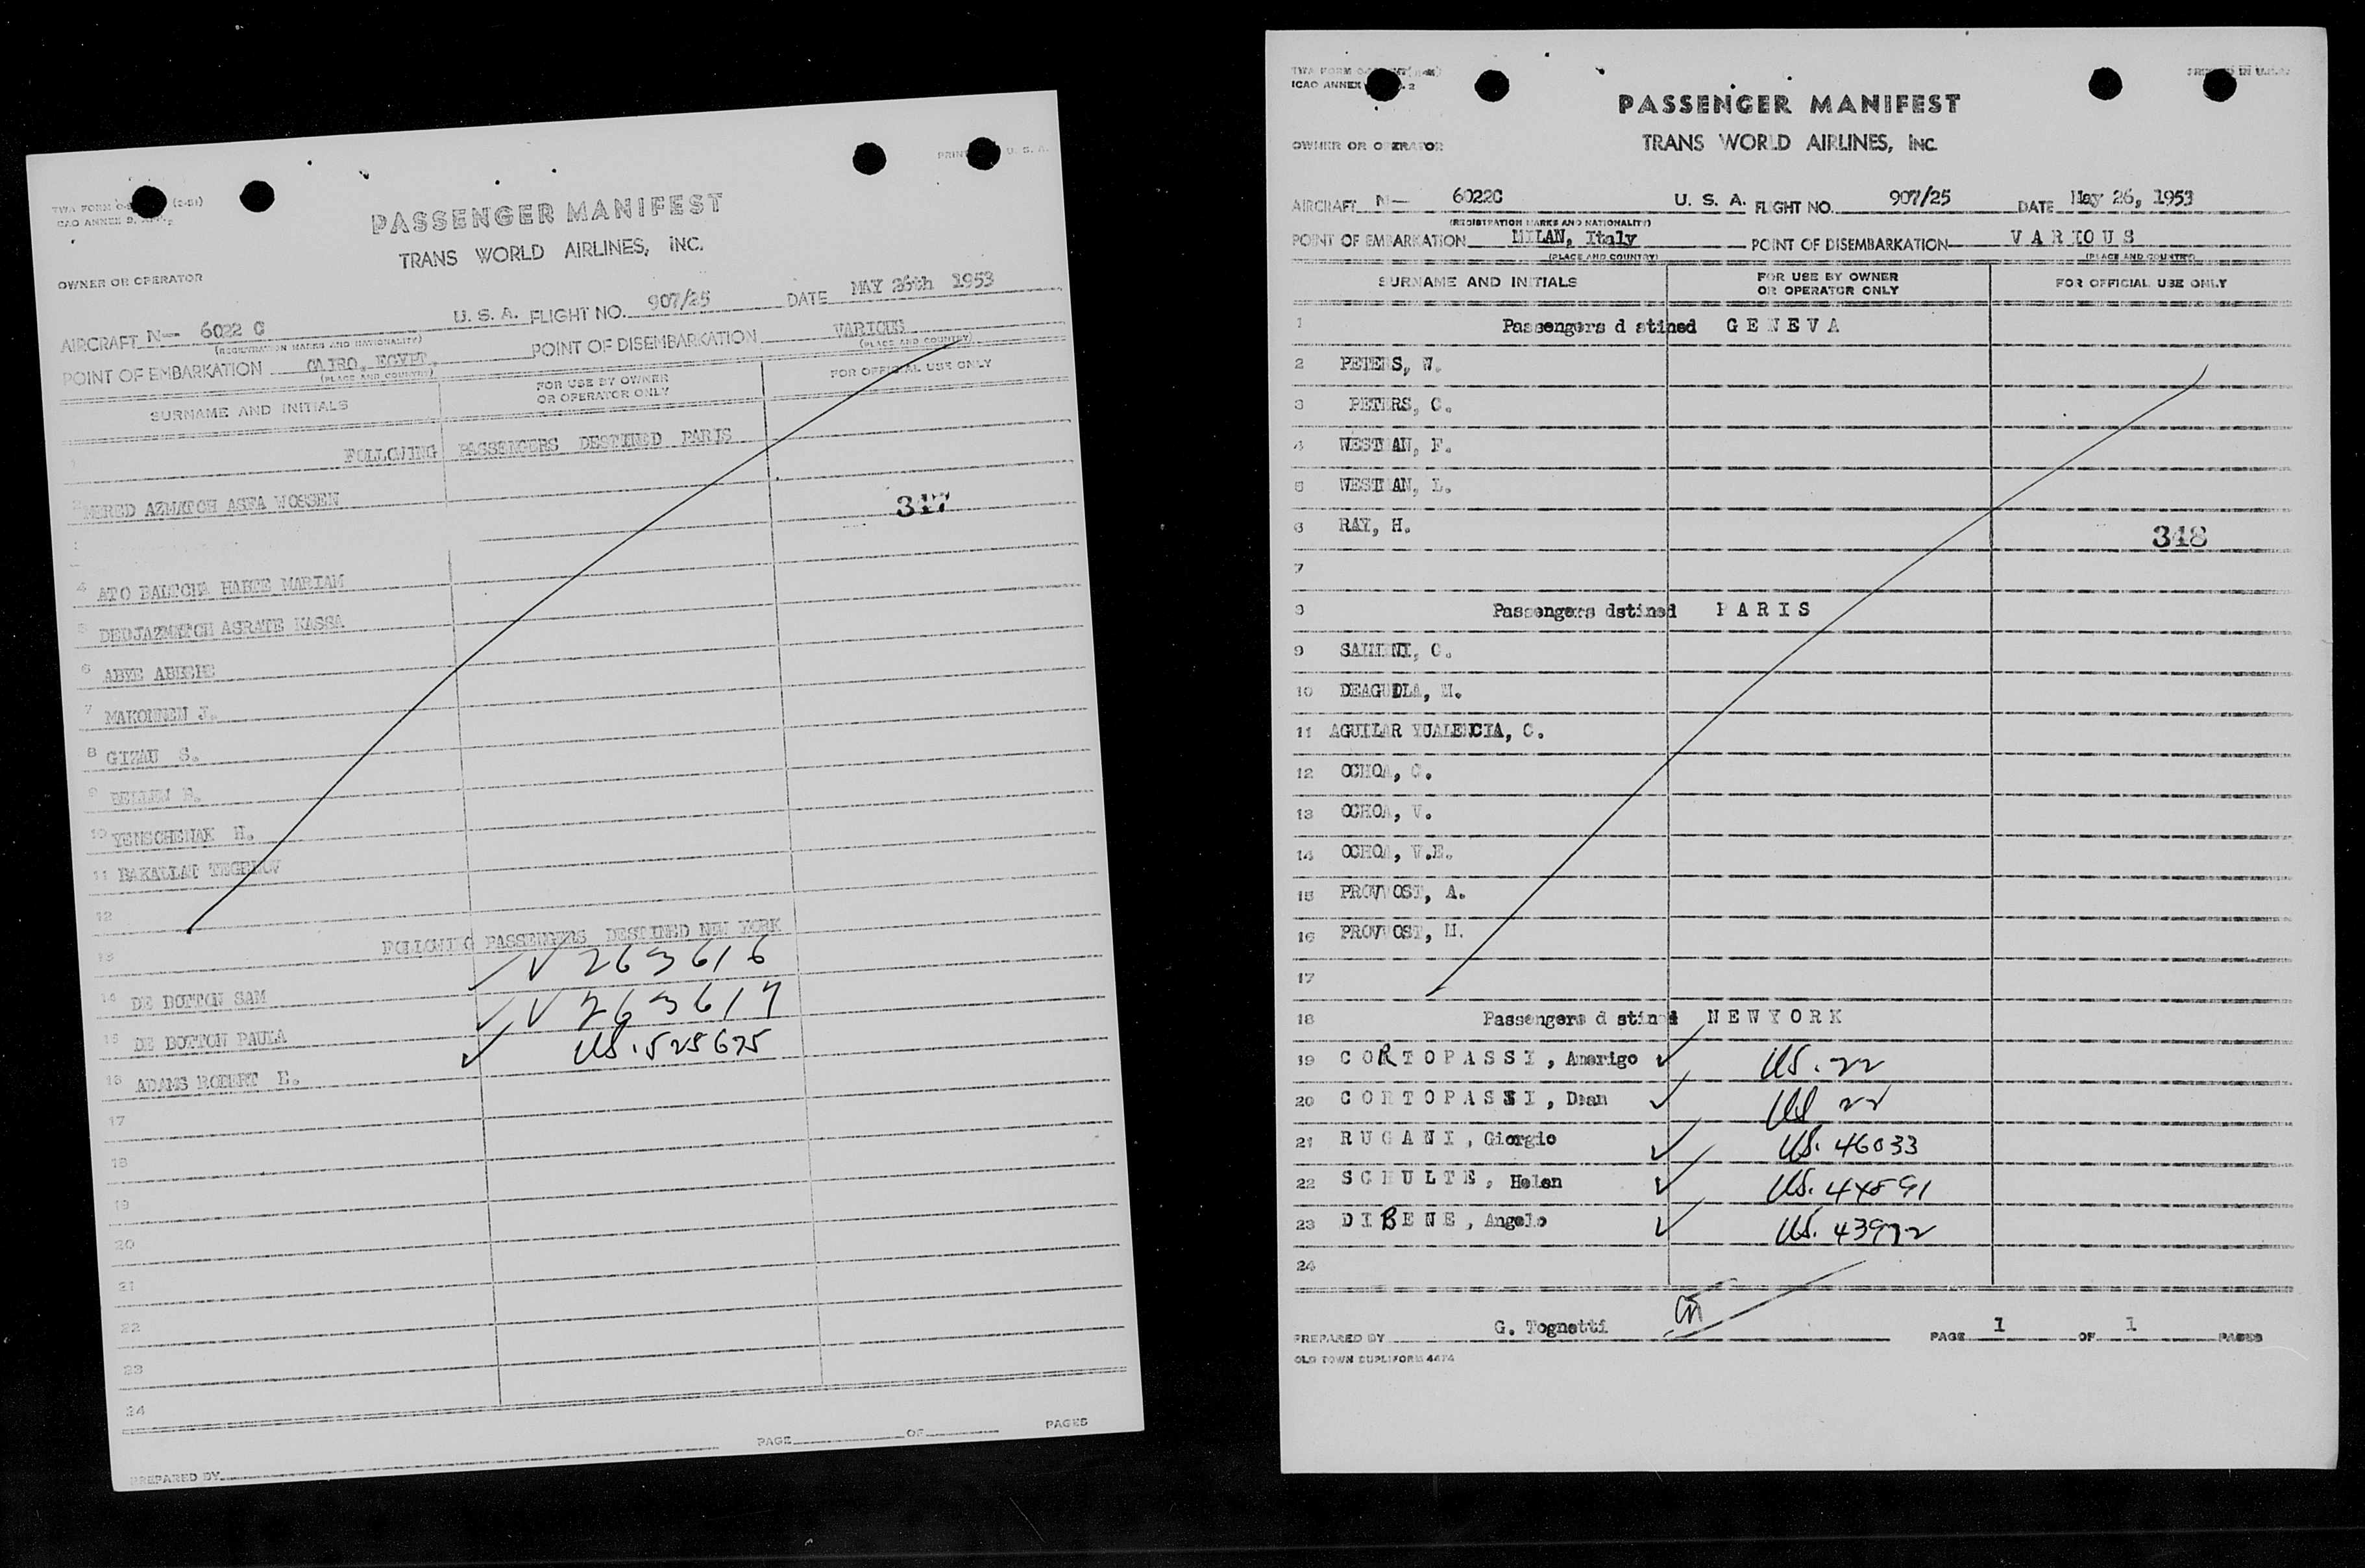 TWA FORM
PRIN U. S. A.
PASSENGER MANIFEST
TRANS WORLD AIRLINES, INC.
OWNER OR OPERATOR
AIRCRAFT N— 6022 C U. S. A. FLIGHT NO. 907/25 DATE MAY 26th 1953
(REGISTRATION MARKS AND NATIONALITY)
POINT OF EMBARKATION CAIRO, EGYPT. POINT OF DISEMBARKATION VARIOUS
(PLACE AND COUNTRY) (PLACE AND COUNTRY)
SURNAME AND INITIALS FOR USE BY OWNER OR OPERATOR ONLY FOR OFFICIAL USE ONLY
1 FOLLOWING PASSENGERS DESTINED PARIS
2 MERED AZMATCH ASFA WOSSEN
347
4 ATO BALTCHA HABTE MARIAM
5 DEDJAZMATCH ASRATE KASSA
6 ABYE ABEBE
7 MAKONNEN J.
8 GIZAU S.
9
10 YENSCHENAK H.
11 BAKALLAT
12
13 FOLLOWING PASSENGERS DESTINED NEW YORK
14 DE BOTTON SAM ✓ V 263616
15 DE BOTTON PAULA ✓ V 263617
16 ADAMS ROBERT E. ✓ US. 525675
17
18
19
20
21
22
23
24
PREPARED BY PAGE OF PAGES
TWA FORM
ICAO ANNEX 2
IN U.S.A.
PASSENGER MANIFEST
TRANS WORLD AIRLINES, INC.
OWNER OR OPERATOR
AIRCRAFT N— 6022C U. S. A. FLIGHT NO. 907/25 DATE May 26, 1953
(REGISTRATION MARKS AND NATIONALITY)
POINT OF EMBARKATION MILAN, Italy POINT OF DISEMBARKATION V A R I O U S
(PLACE AND COUNTRY) (PLACE AND COUNTRY)
SURNAME AND INITIALS FOR USE BY OWNER OR OPERATOR ONLY FOR OFFICIAL USE ONLY
1 Passengers d stined G E N E V A
2 PETERS, W.
3 PETERS, C.
4 WESTMAN, F.
5 WESTMAN, L.
6 RAY, H.
348
7
8 Passengers dstined P A R I S
9 SALMINI, C.
10 DEAGUDLA, M.
11 AGUILAR YUALENCIA, C.
12 OCHOA, C.
13 OCHOA, V.
14 OCHOA, V.E.
15 PROVVOST, A.
16 PROVVOST, M.
17
18 Passengers d stined N E W Y O R K
19 C O R T O P A S S I , Amerigo ✓ US. 22
20 C O R T O P A S S I , Dean ✓ US 22
21 R U G A N I , Giorgio ✓ US. 46033
22 S C H U L T E , Helen ✓ US. 44891
23 D I B E N E , Angelo ✓ US. 43972
24
PREPARED BY G. Tognetti PAGE 1 OF 1 PAGES
OLD TOWN DUPLIFORM 4474